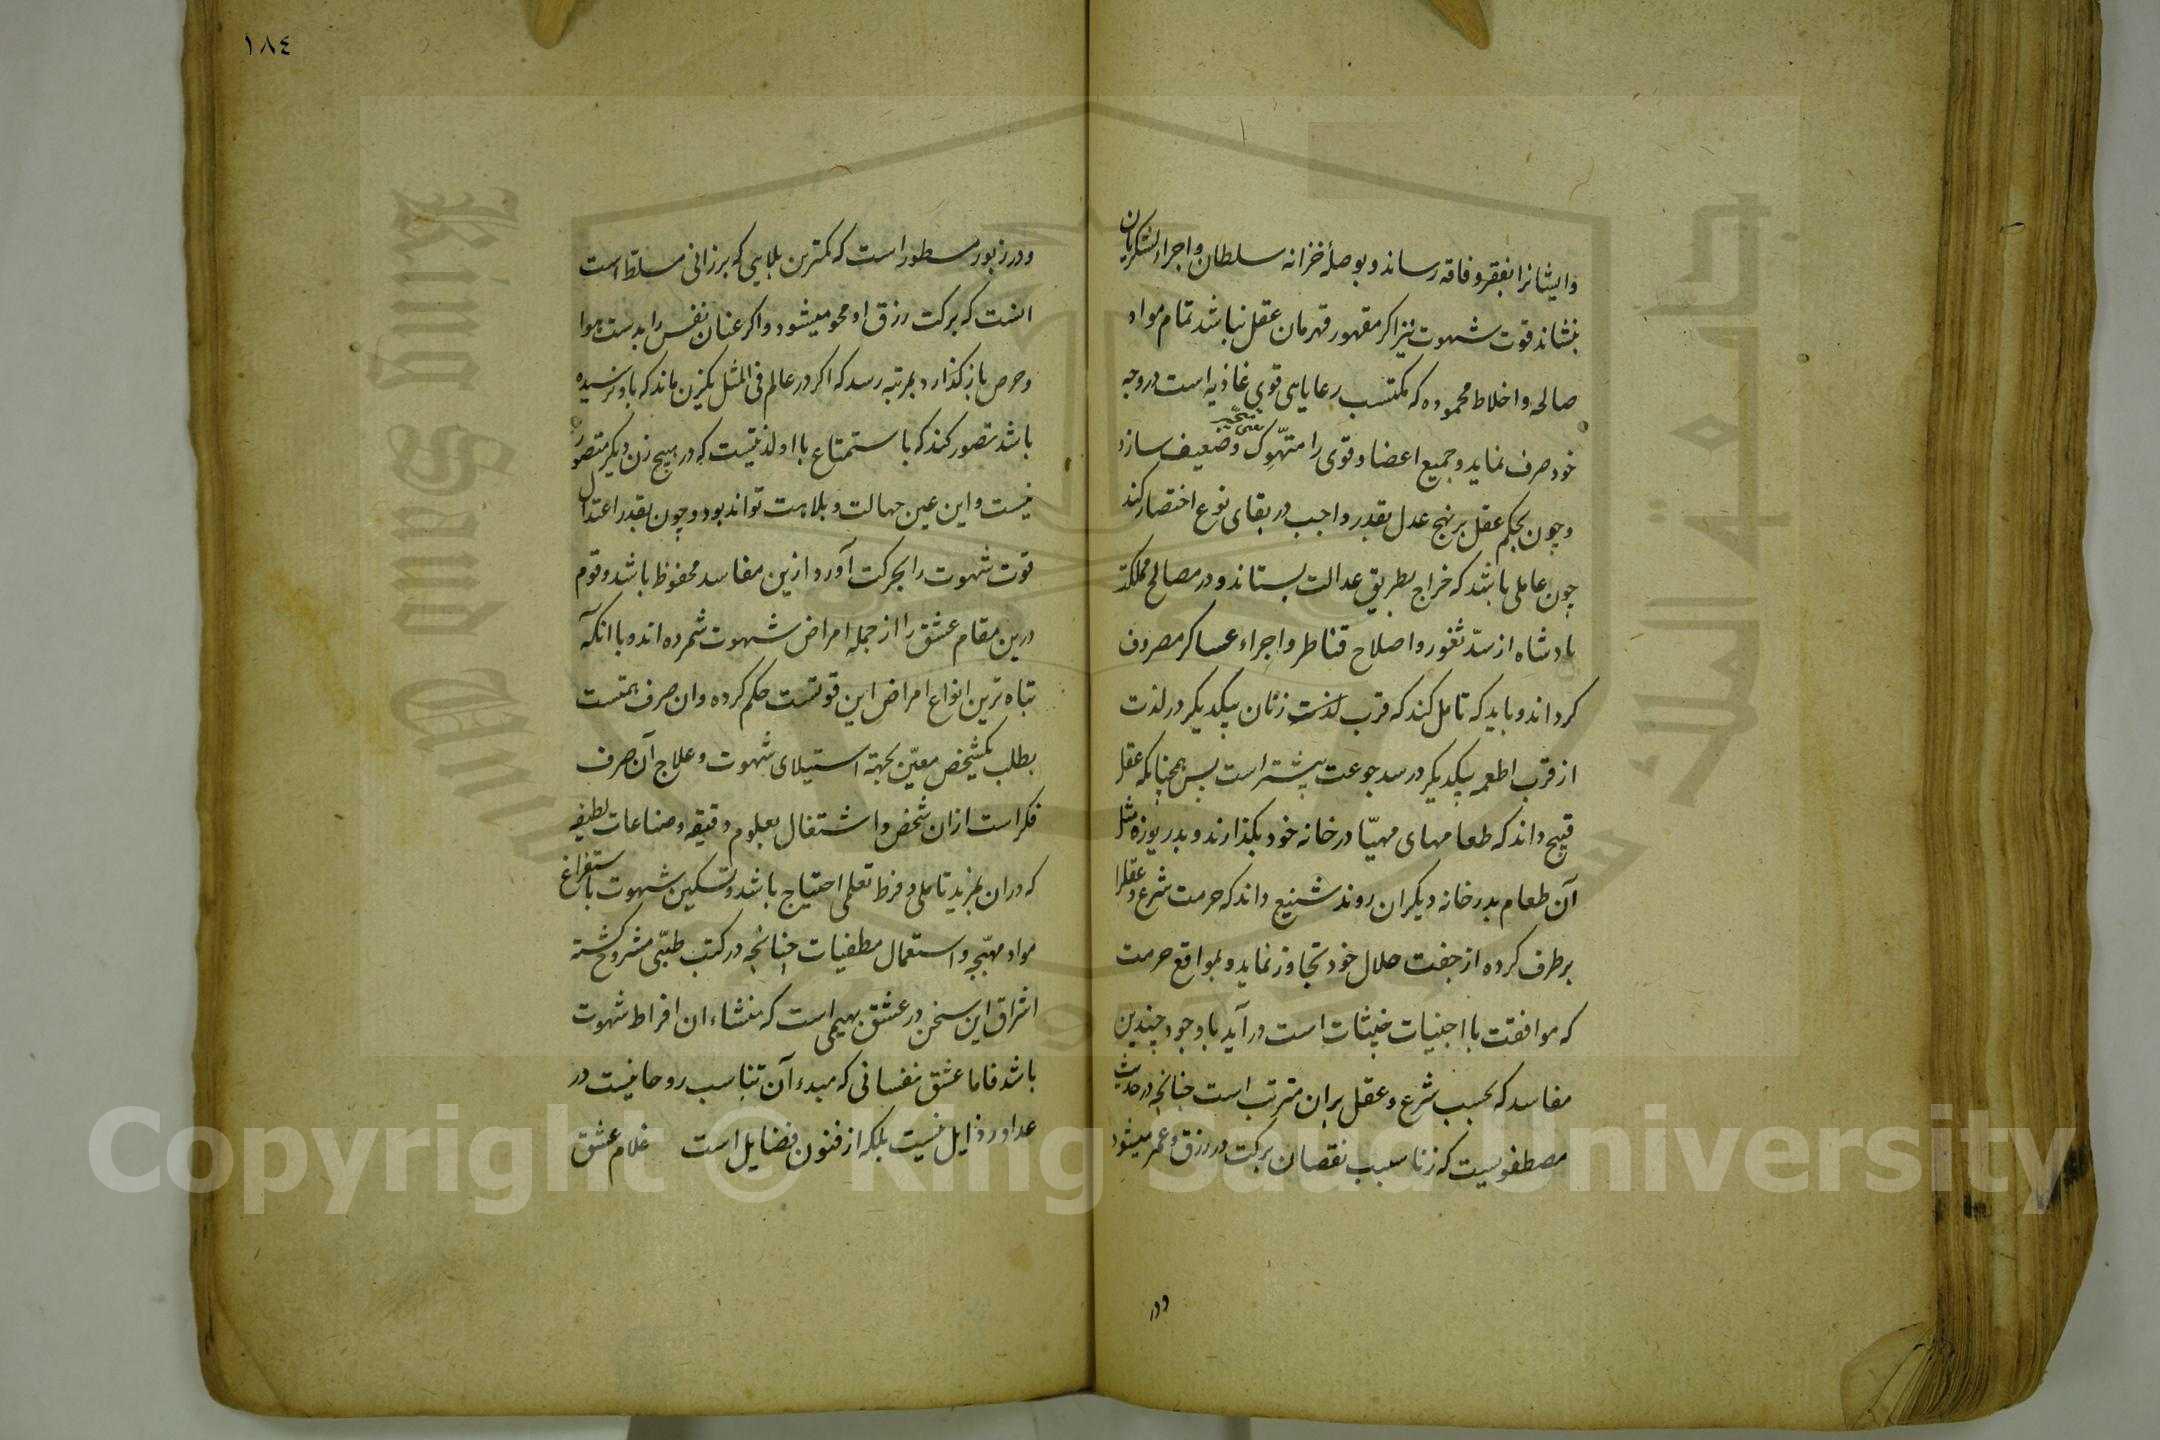 وایشانرا بفقر و فاقه رساند و بوصلهٔ خزانه سلطان و اجراء لشکریان
بنشاند قوت شهوت نیز اکر مقهور قهرمان عقل نباشد تمام مواد
صالحه و اخلاط محموده که مکتسب رعایای قوی غاذیه است در وجه
خود صرف نماید و جمیع اعضا و قوی را متهوک و ضعیف سازد
و چون بحکم عقل بر نهج عدل بقدر واجب در بقای نوع اختصار کند
چون عاملی باشد که خراج بطریق عدالت بستاند و در مصالح مملکت
بادشاه از سدّ ثغور و اصلاح قناطر و اجراء عساکر مصروف
کرداند و باید که تامل کند که قرب لذت زنان بیکدیکر در لذت
از قرب اطعمه بیکدیکر در سد جوعت بیشتر است پس همچنانکه عقل
قبیح داند که طعامهای مهیّا در خانه خود بکذارند و بدریوزه مثل
آن طعام بدر خانه دیکران روند شنیع داند که حرمت شرع و عقل را
بر طرف کرده از جفت حلال خود تجاوز نماید و بمواقع حرمت
که موافقت با اجنبیات خبیثات است در آید با وجود چندین
مفاسد که بحسب شرع و عقل بران مترتب است چنانچه در حدیث
مصطفویست که زنا سبب نقصان برکت در رزق و عمر میشود
در
١٨٤
و در زبور مسطور است که کمترین بلایی که بر زانی مسلط است
انست که برکت رزق او محو میشود و اکر عنان نفس را بدست هوا
و حرص باز کذارد بمرتبه رسد که اکر در عالم فی المثل یکزن ماند که باو نرسیده
باشد تصور کند که با استمتاع با او لذتیست که در هیچ زن دیکر متصور
نیست و این عین جهالت و بلاهت تواند بود و چون بقدر اعتدال
قوت شهوت را بحرکت آورد ازین مفاسد محفوظ باشد و قوم
درین مقام عشق را از جمله امراض شهوت شمرده اند و با انکه
تباه ترین انواع امراض این قوتست حکم کرده و ان صرف همتست
بطلب یکشخص معیّن بجهة استیلای شهوت و علاج آن صرف
فکر است ازان شخص و اشتغال بعلوم دقیقه و صناعات لطیفه
که دران بمزید تاملی و فرط تعلمی احتیاج باشد و تسکین شهوت باستفراغ
مواد مهیّجه و استعمال مطفیات چنانچه در کتب طبّی مشروح کشته
اشراق این سخن در عشق بهیمی است که منشاء ان افراط شهوت
باشد فاما عشق نفسانی که مبدء آن تناسب روحانیست در
عداد رذایل نیست بلکه از فنون فضایل است غلام عشق
Copyright © King Saud University
King Saud University